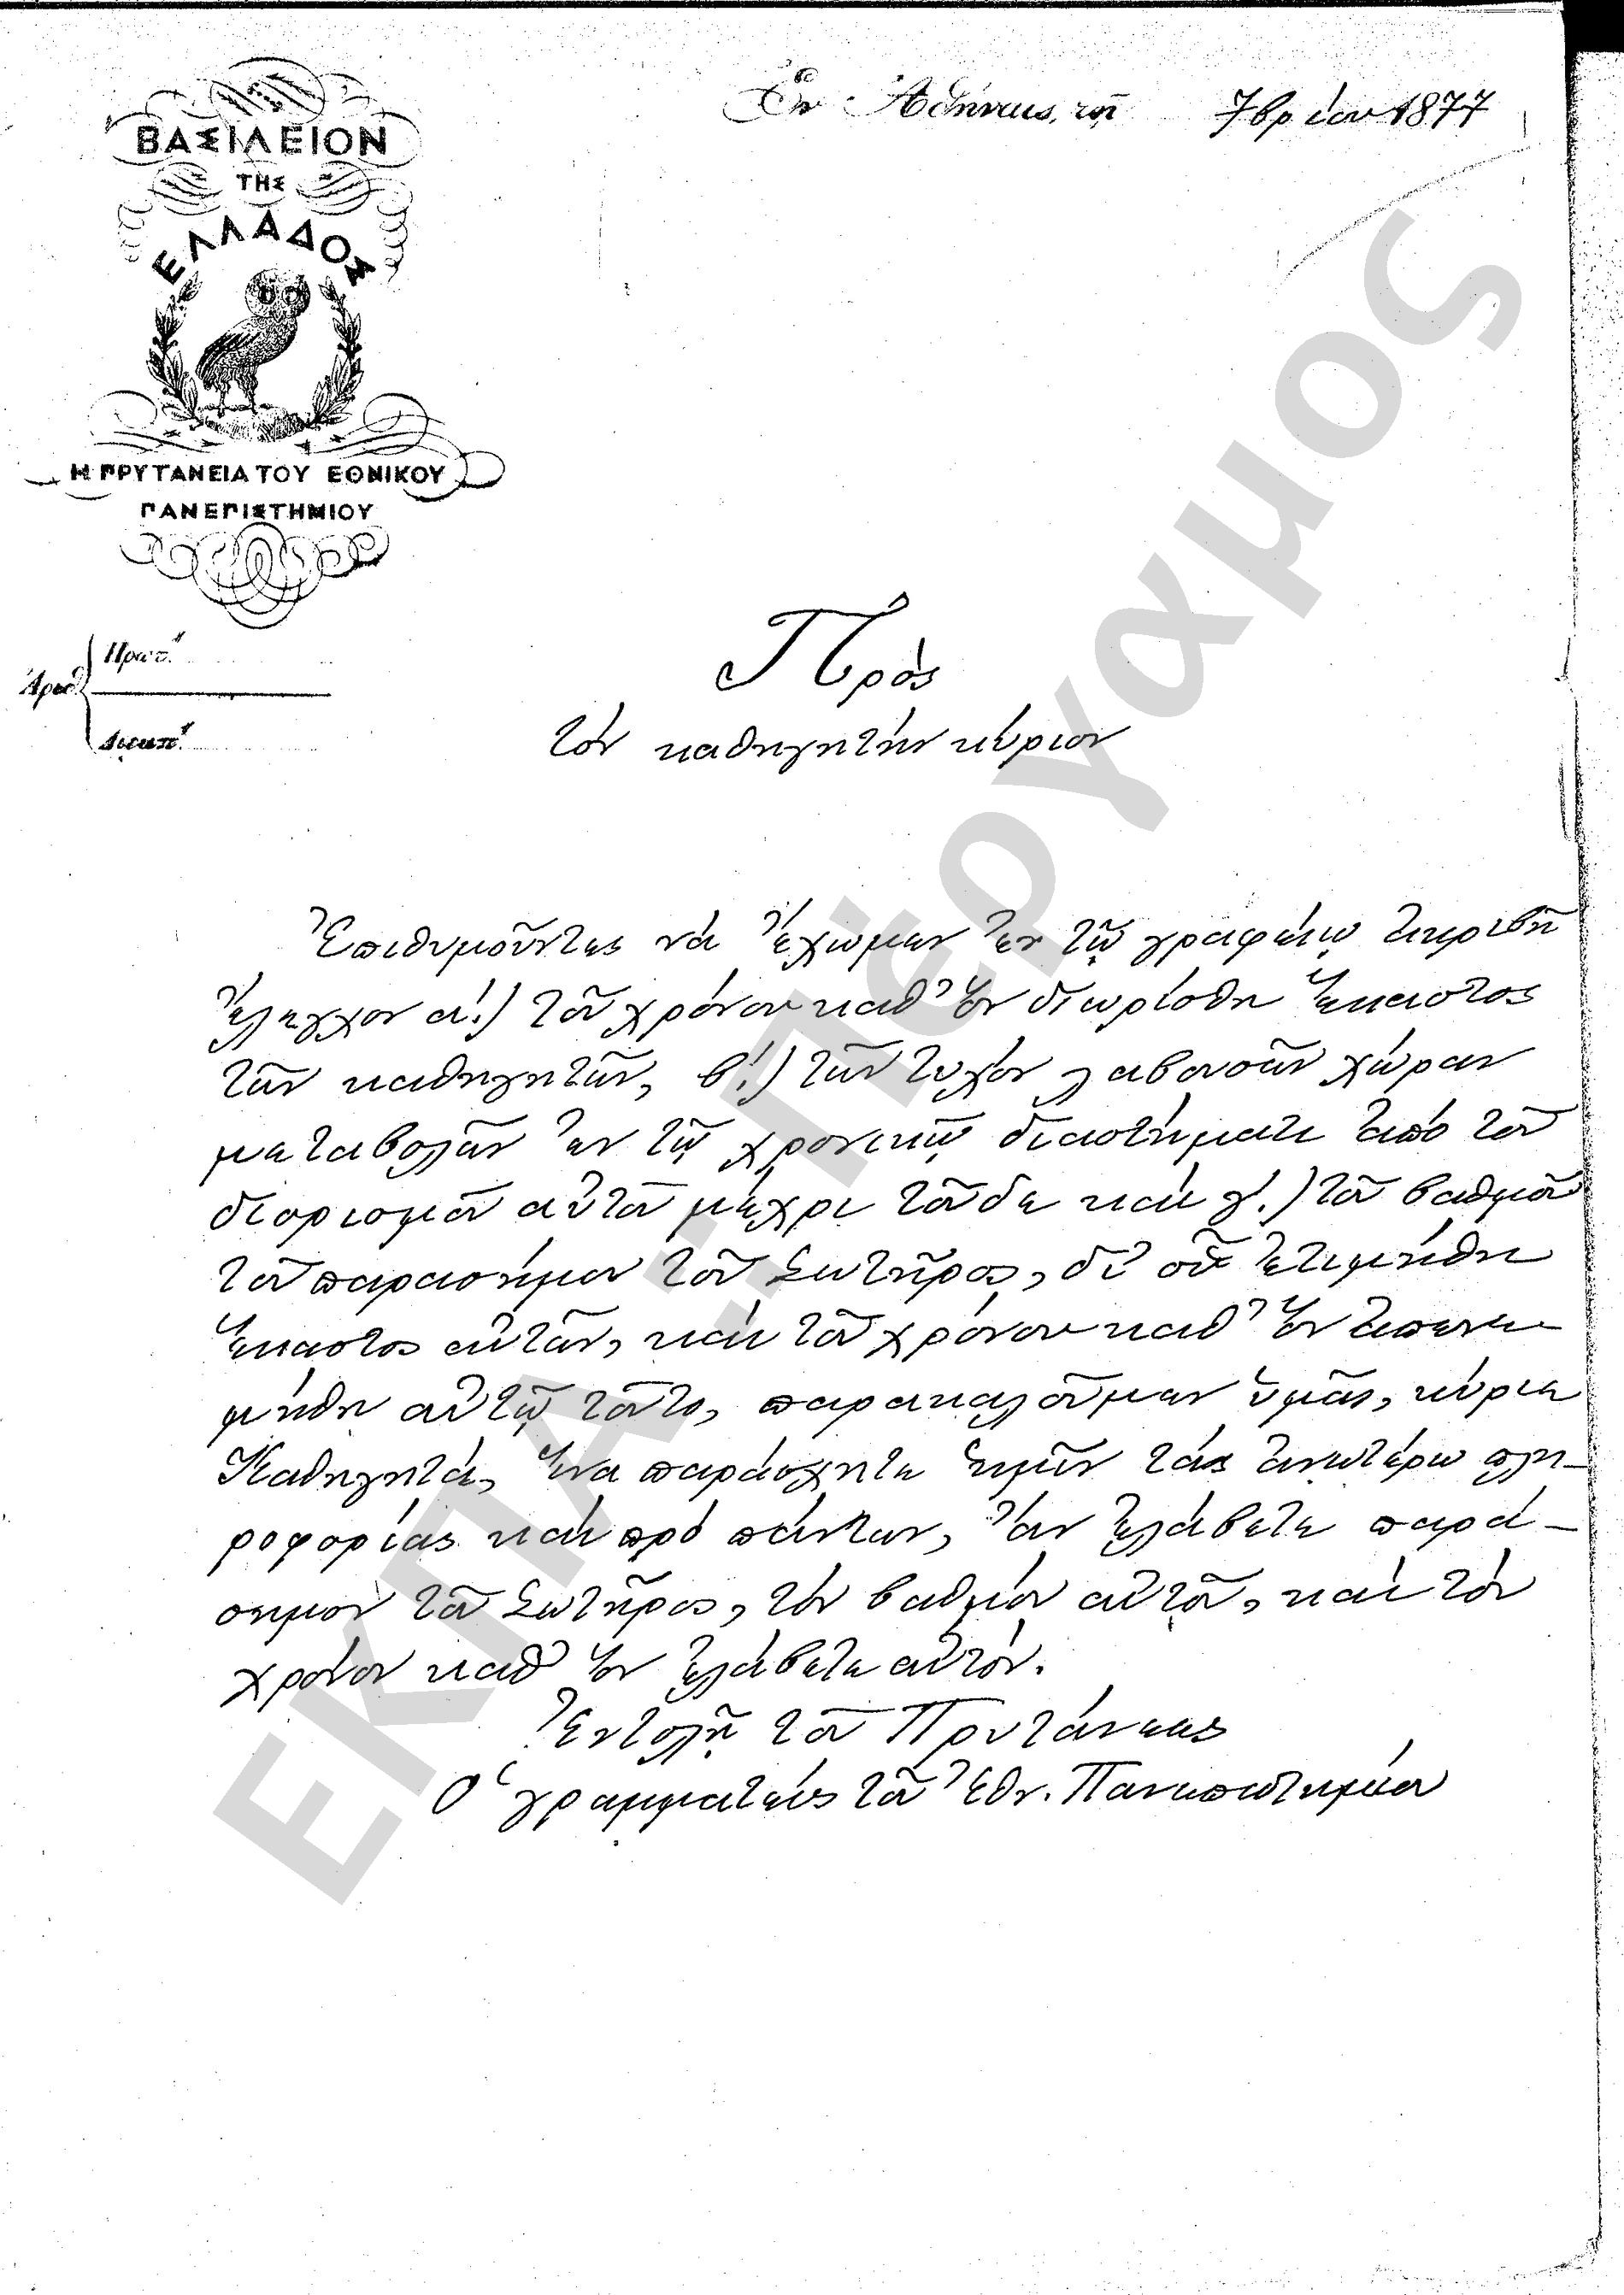 ΒΑΣΙΛΕΙΟΝ
ΤΗΣ
ΕΛΛΑΔΟΣ
Η ΠΡΥΤΑΝΕΙΑ ΤΟΥ ΕΘΝΙΚΟΥ
ΠΑΝΕΠΙΣΤΗΜΙΟΥ
Ἐν Ἀθήναις, τῇ 7βρίου 1877
Πρωτ.
Ἀριθ.
Διεκπ.
Πρὸς
τὸν καθηγητὴν κύριον
Ἐπιθυμοῦντες νὰ ἔχωμεν ἐν τῷ γραφείῳ ἀκριβῆ
ἔλεγχον α΄.) τοῦ χρόνου καθ' ὃν διωρίσθη ἕκαστος
τῶν καθηγητῶν, β΄.) τῶν τυχὸν λαβουσῶν χώραν
μεταβολῶν ἐν τῷ χρονικῷ διαστήματι ἀπὸ τοῦ
διορισμοῦ αὐτοῦ μέχρι τοῦδε καὶ γ΄.) τοῦ βαθμοῦ
τοῦ παρασήμου τοῦ Σωτῆρος, δι' οὗ ἐτιμήθη
ἕκαστος αὐτῶν, καὶ τοῦ χρόνου καθ' ὃν ἀπενε-
μήθη αὐτῷ τοῦτο, παρακαλοῦμεν ὑμᾶς, κύριε
Καθηγητά, ἵνα παράσχητε ἡμῖν τὰς ἀνωτέρω πλη-
ροφορίας καὶ πρὸ πάντων, ἂν ἐλάβετε παρά-
σημον τοῦ Σωτῆρος, τὸν βαθμὸν αὐτοῦ, καὶ τὸν
χρόνον καθ' ὃν ἐλάβετε αὐτόν.
Ἐντολῇ τοῦ Πρυτάνεως
Ὁ γραμματεὺς τοῦ Ἐθν. Πανεπιστημίου
ΕΚΠΑ - Πέργαμος